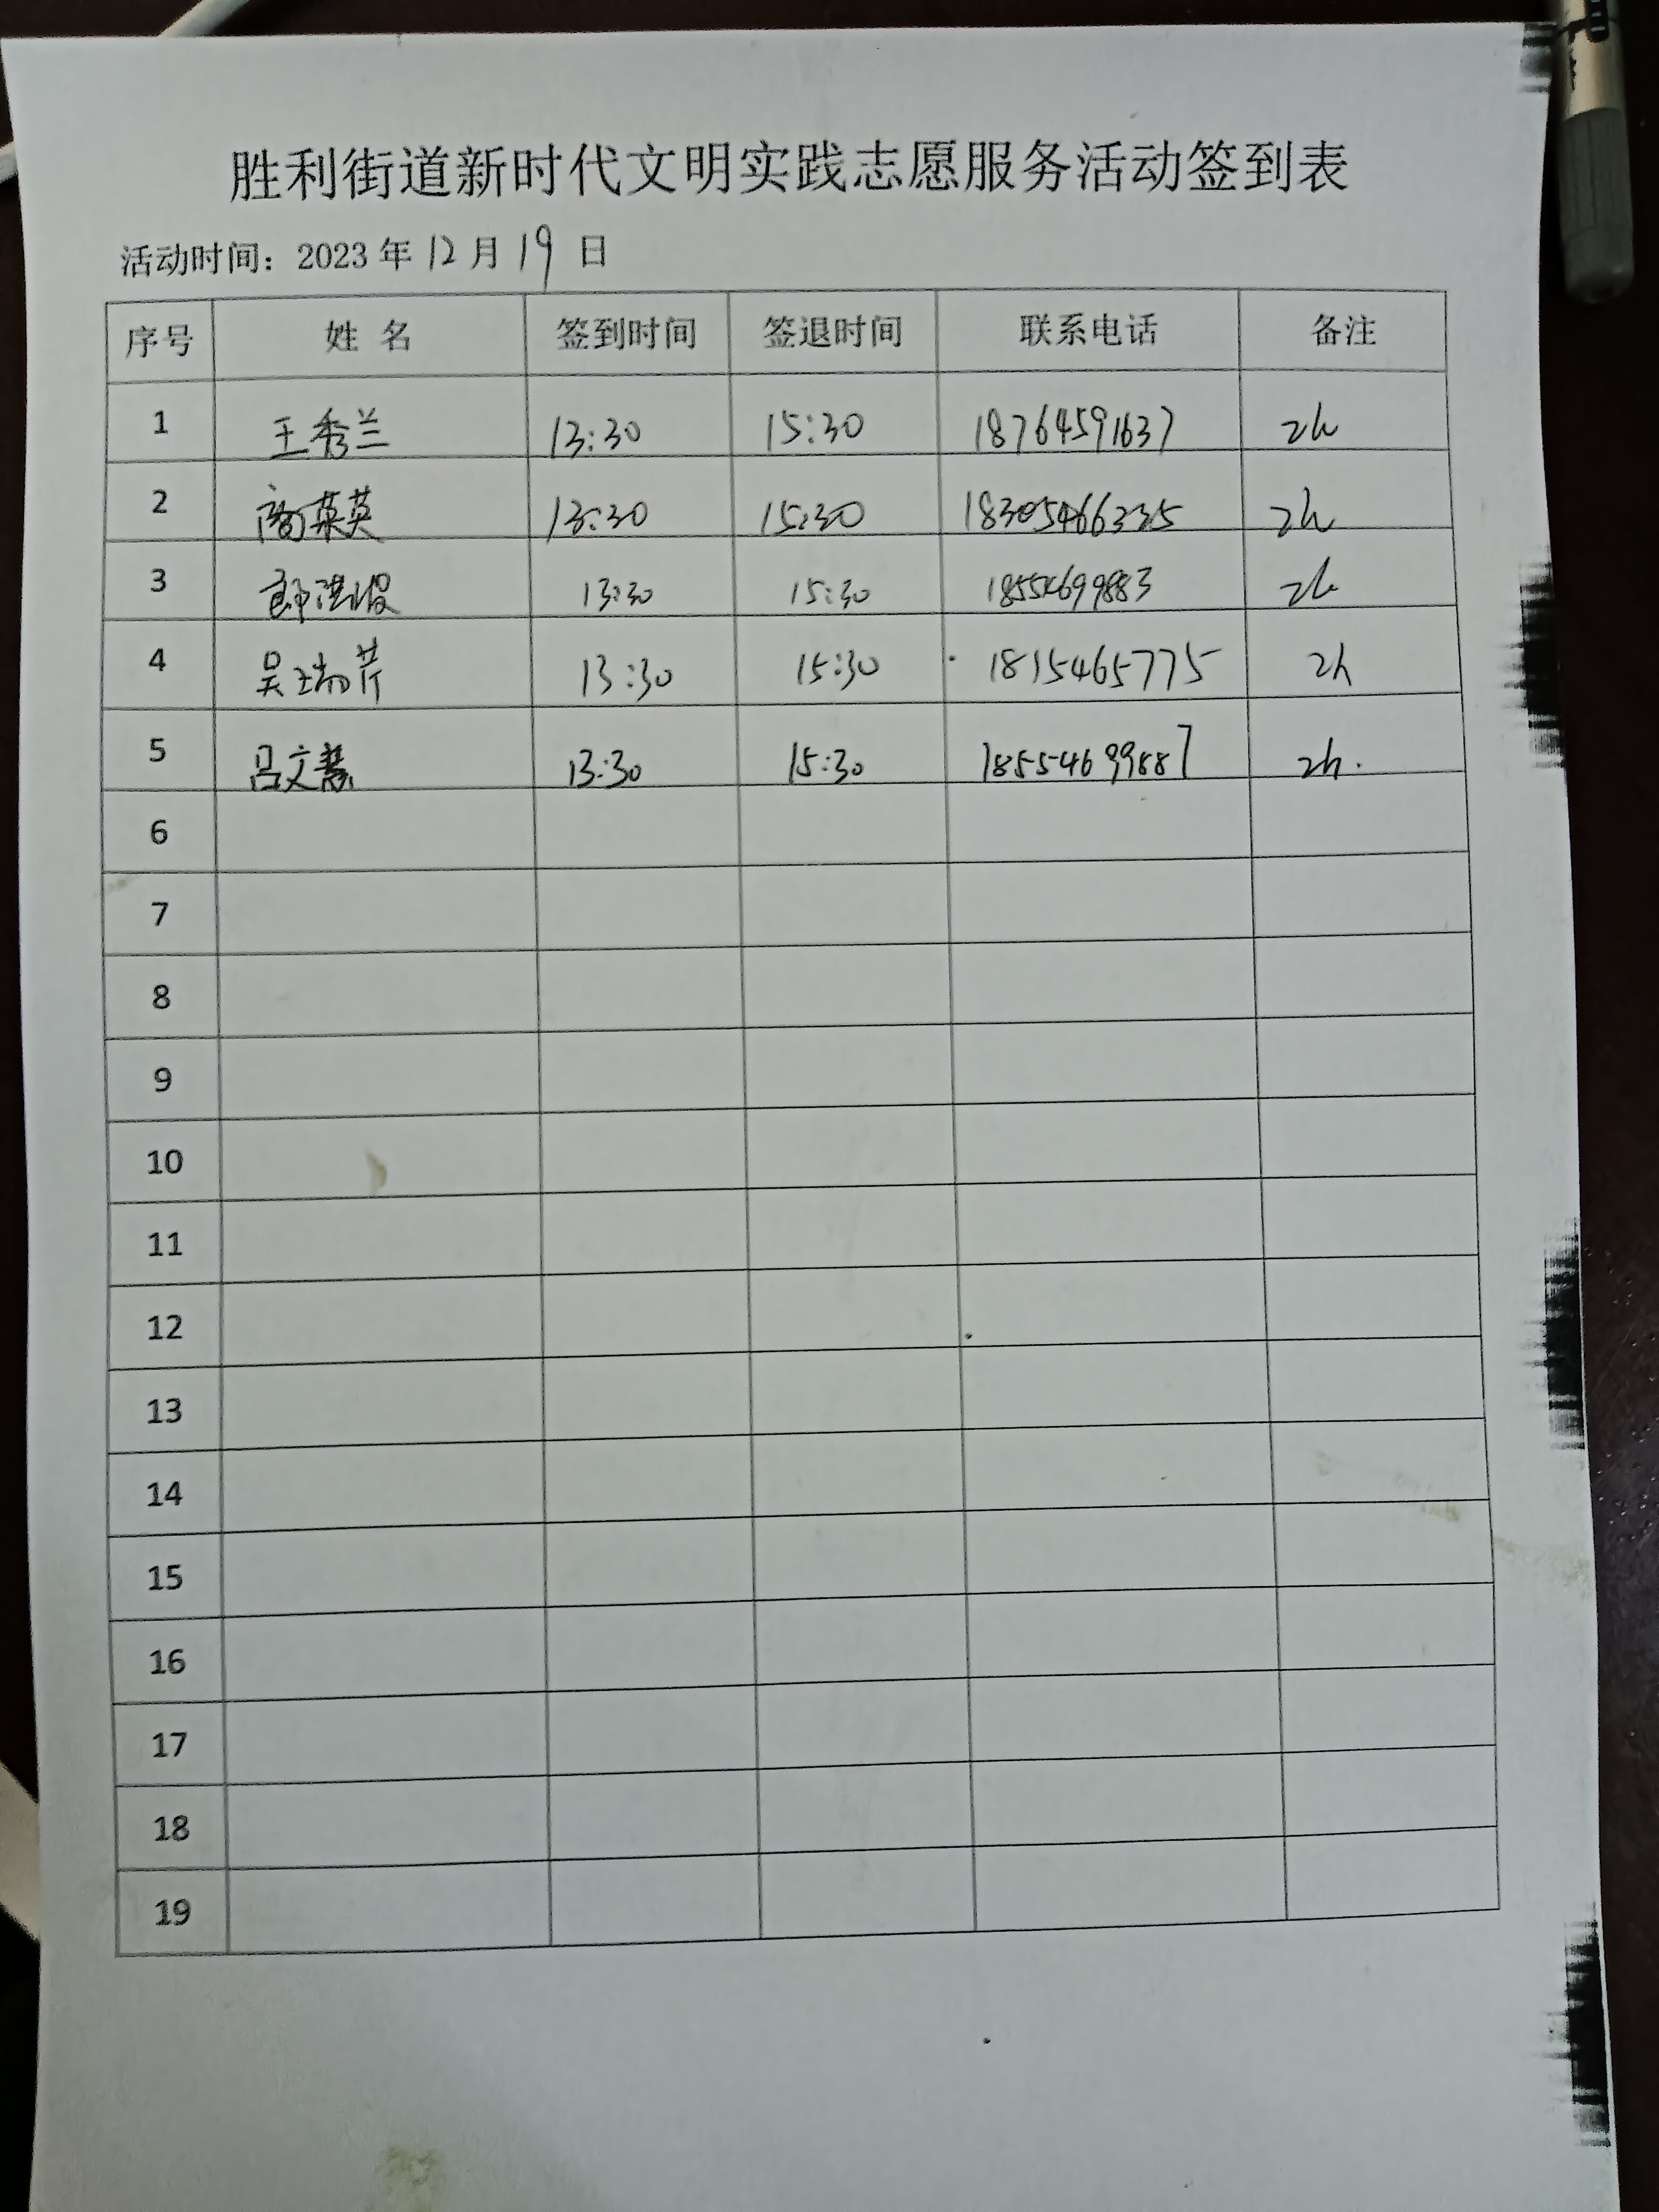 胜利街道新时代文明实践志愿服务活动签到表
活动时间：2023 年 12 月 19 日
序号 姓 名 签到时间 签退时间 联系电话 备注
1 王秀兰 13:30 15:30 18764591637 2h
2 商菜英 13:30 15:30 18305466335 2h
3 13:30 15:30 18554699883 2h
4 吴瑞芹 13:30 15:30 1815465775 2h
5 吕文慧 13:30 15:30 18554699887 2h.
6
7
8
9
10
11
12
13
14
15
16
17
18
19